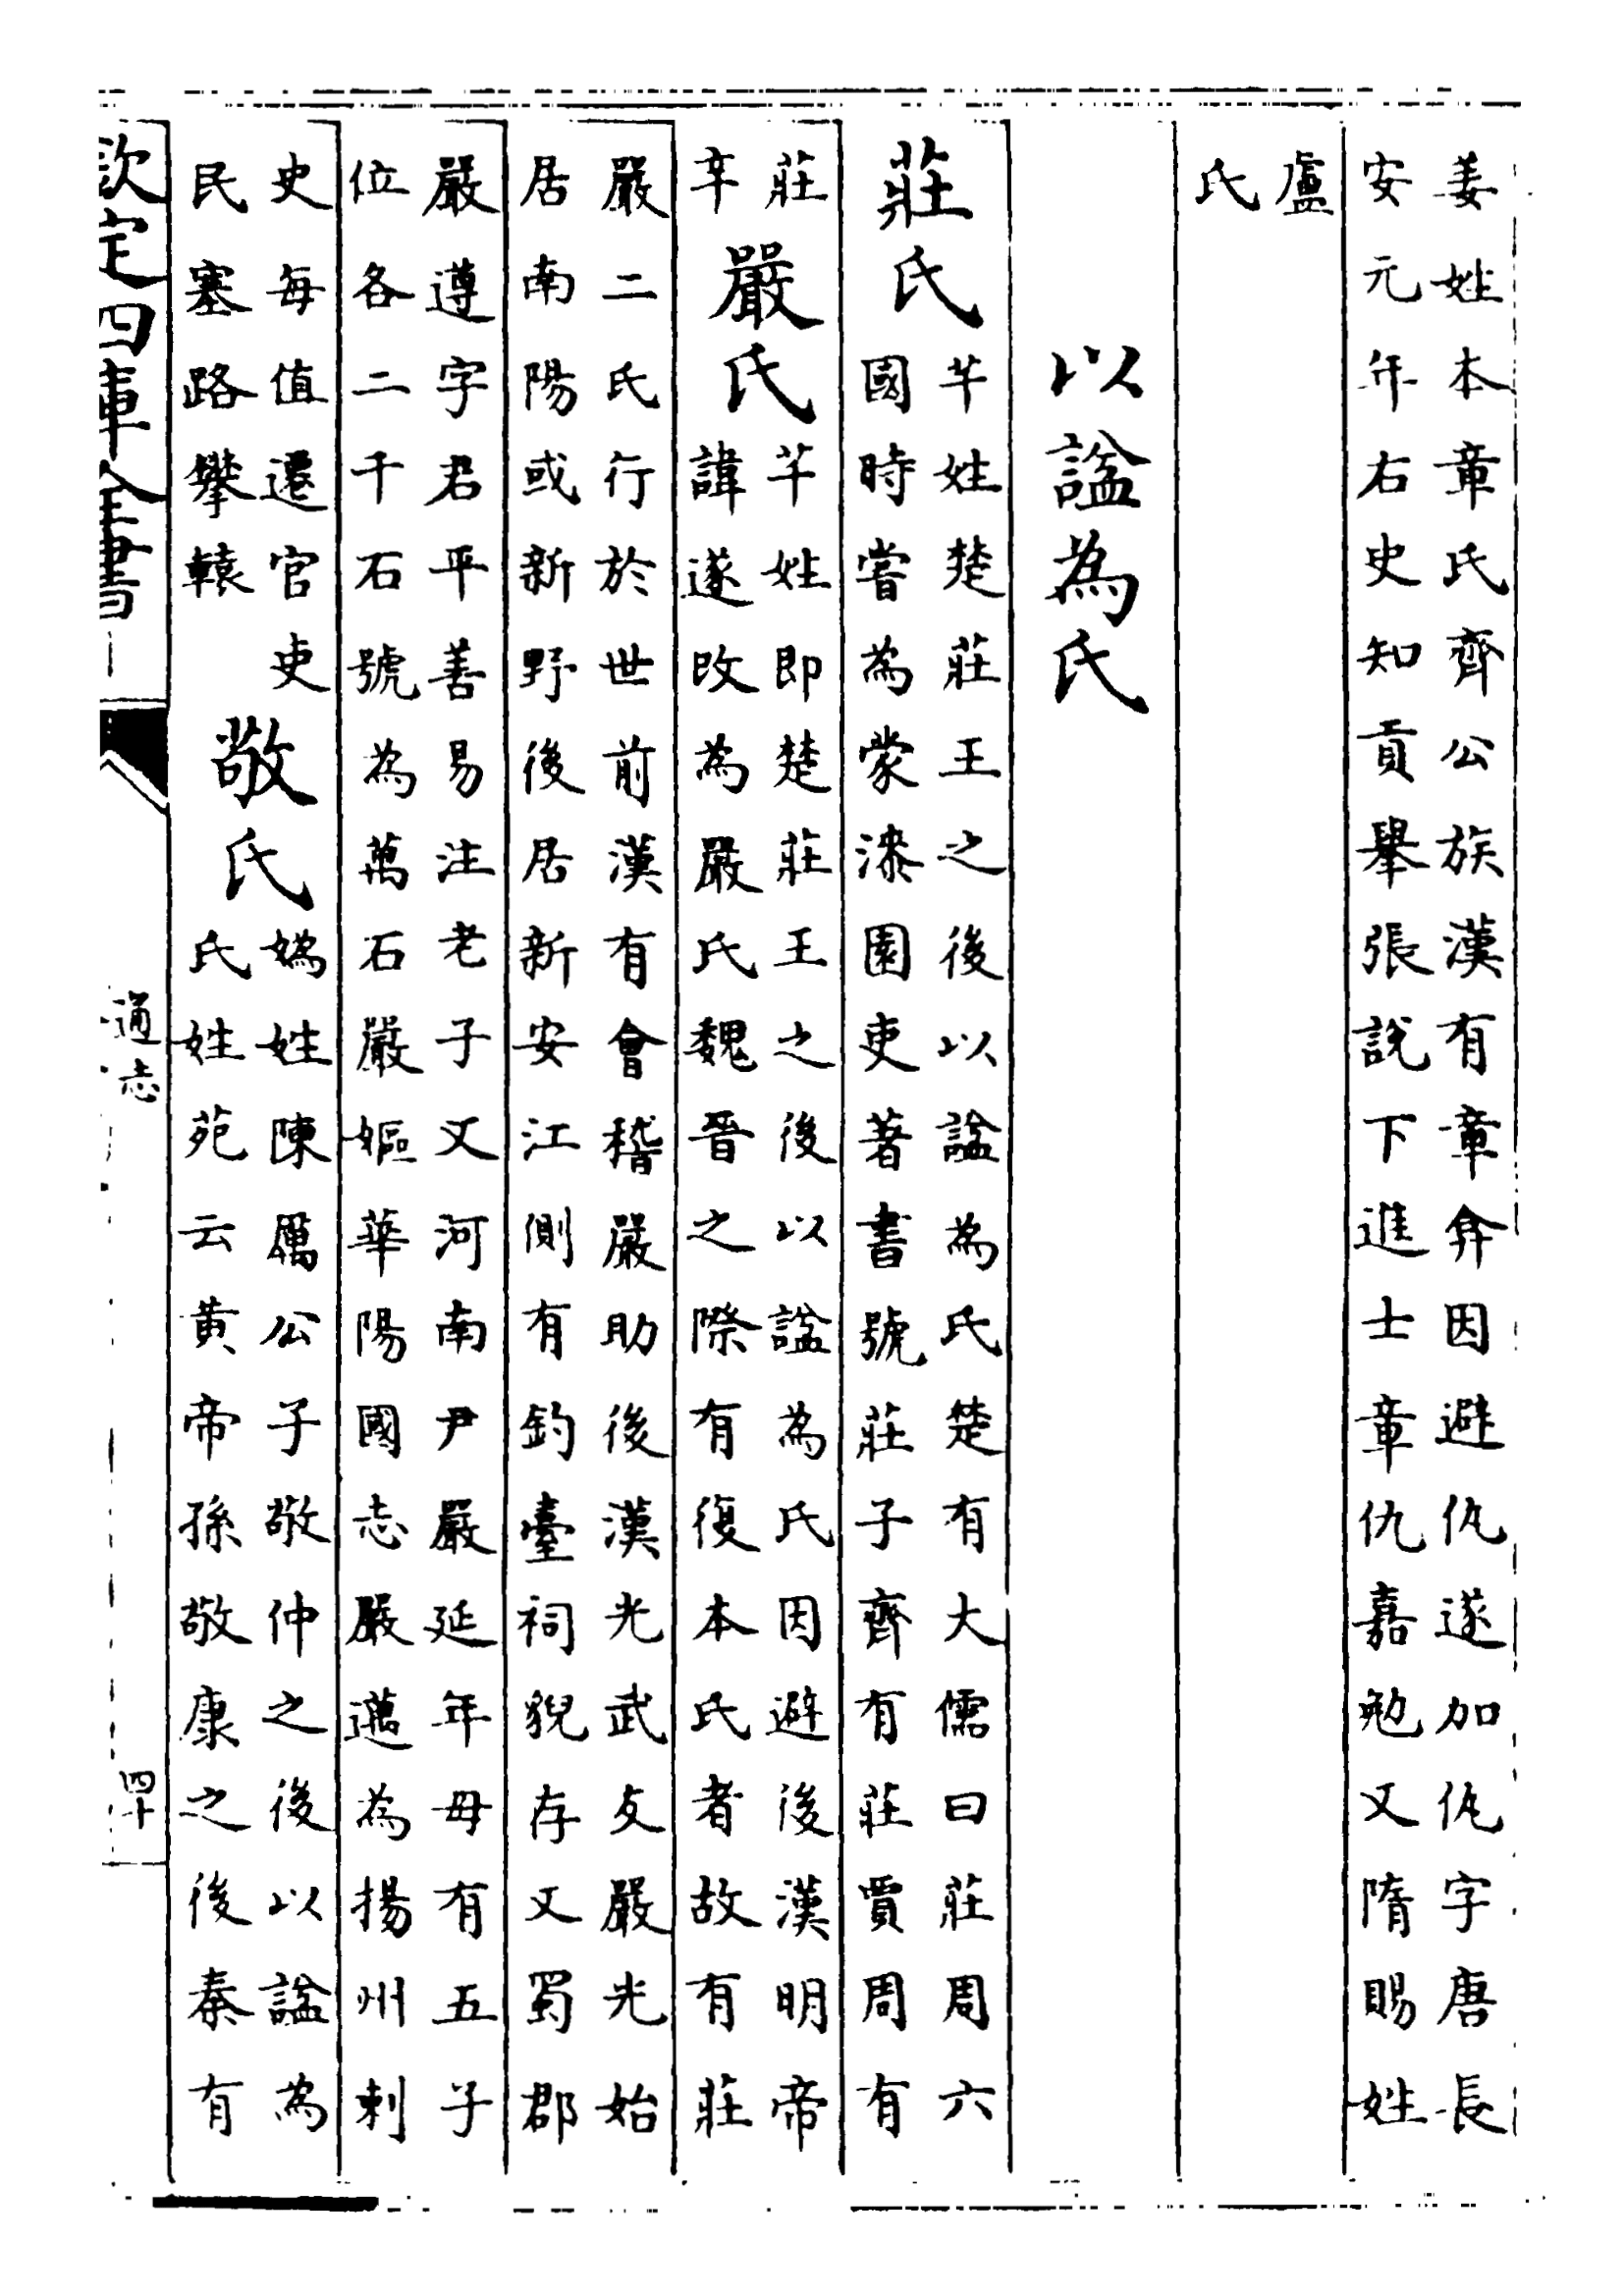 姜姓本章氏齊公族漢有章弇因避仇遂加仇字唐長
安元年右史知貢舉張說下進士章仇嘉勉又隋賜姓
盧
氏
以諡為氏
莊氏
芊姓楚莊王之後以諡為氏楚有大儒曰莊周六
國時嘗為蒙漆園吏著書號莊子齊有莊賈周有
莊
辛
嚴氏
芊姓即楚莊王之後以諡為氏因避後漢明帝
諱遂改為嚴氏魏晉之際有復本氏者故有莊
嚴二氏行於世前漢有會稽嚴助後漢光武友嚴光始
居南陽或新野後居新安江側有釣臺祠猊存又蜀郡
嚴遵字君平善易注老子又河南尹嚴延年母有五子
位各二千石號為萬石嚴嫗華陽國志嚴邁為揚州刺
史每值遷官吏
民塞路攀轅
敬氏
媯姓陳厲公子敬仲之後以諡為
氏姓苑云黃帝孫敬康之後秦有
欽定四庫全書
通志
四十